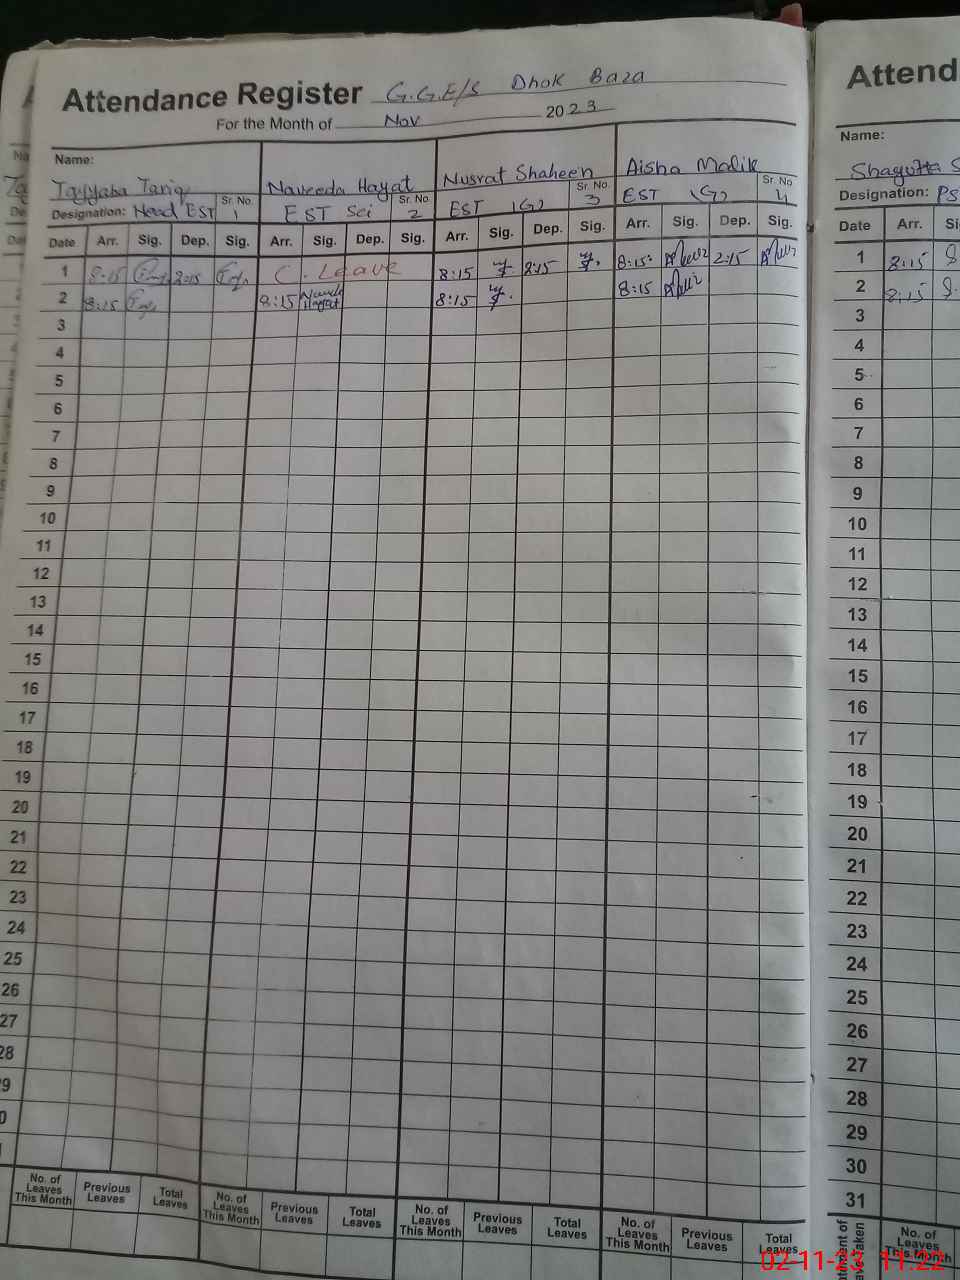 Attendance Register G.G.E/S Dhok Baza
For the Month of Nov 2023
Name:
Tayyaba Tariq Naveeda Hayat Nusrat Shaheen Aisha Malik
Designation: Head EST Sr. No. 1 EST Sci Sr. No. 2 EST (G) Sr. No. 3 EST (G) Sr. No. 4
Date Arr. Sig. Dep. Sig. Arr. Sig. Dep. Sig. Arr. Sig. Dep. Sig. Arr. Sig. Dep. Sig.
1 8:15 2:15 C. Leave 8:15 2:15 8:15 2:15
2 8:15 8:15 Naveeda Hayat 8:15 8:15
3
4
5
6
7
8
9
10
11
12
13
14
15
16
17
18
19
20
21
22
23
24
25
26
27
28
9
0
No. of Leaves This Month Previous Leaves Total Leaves No. of Leaves This Month Previous Leaves Total Leaves No. of Leaves This Month Previous Leaves Total Leaves No. of Leaves This Month Previous Leaves Total Leaves
Attend
Name:
Shagufta S
Designation: PS
Date Arr. Si
1 8:15
2 8:15
3
4
5
6
7
8
9
10
11
12
13
14
15
16
17
18
19
20
21
22
23
24
25
26
27
28
29
30
31
No. of Leaves This Month
02-11-23 11:22